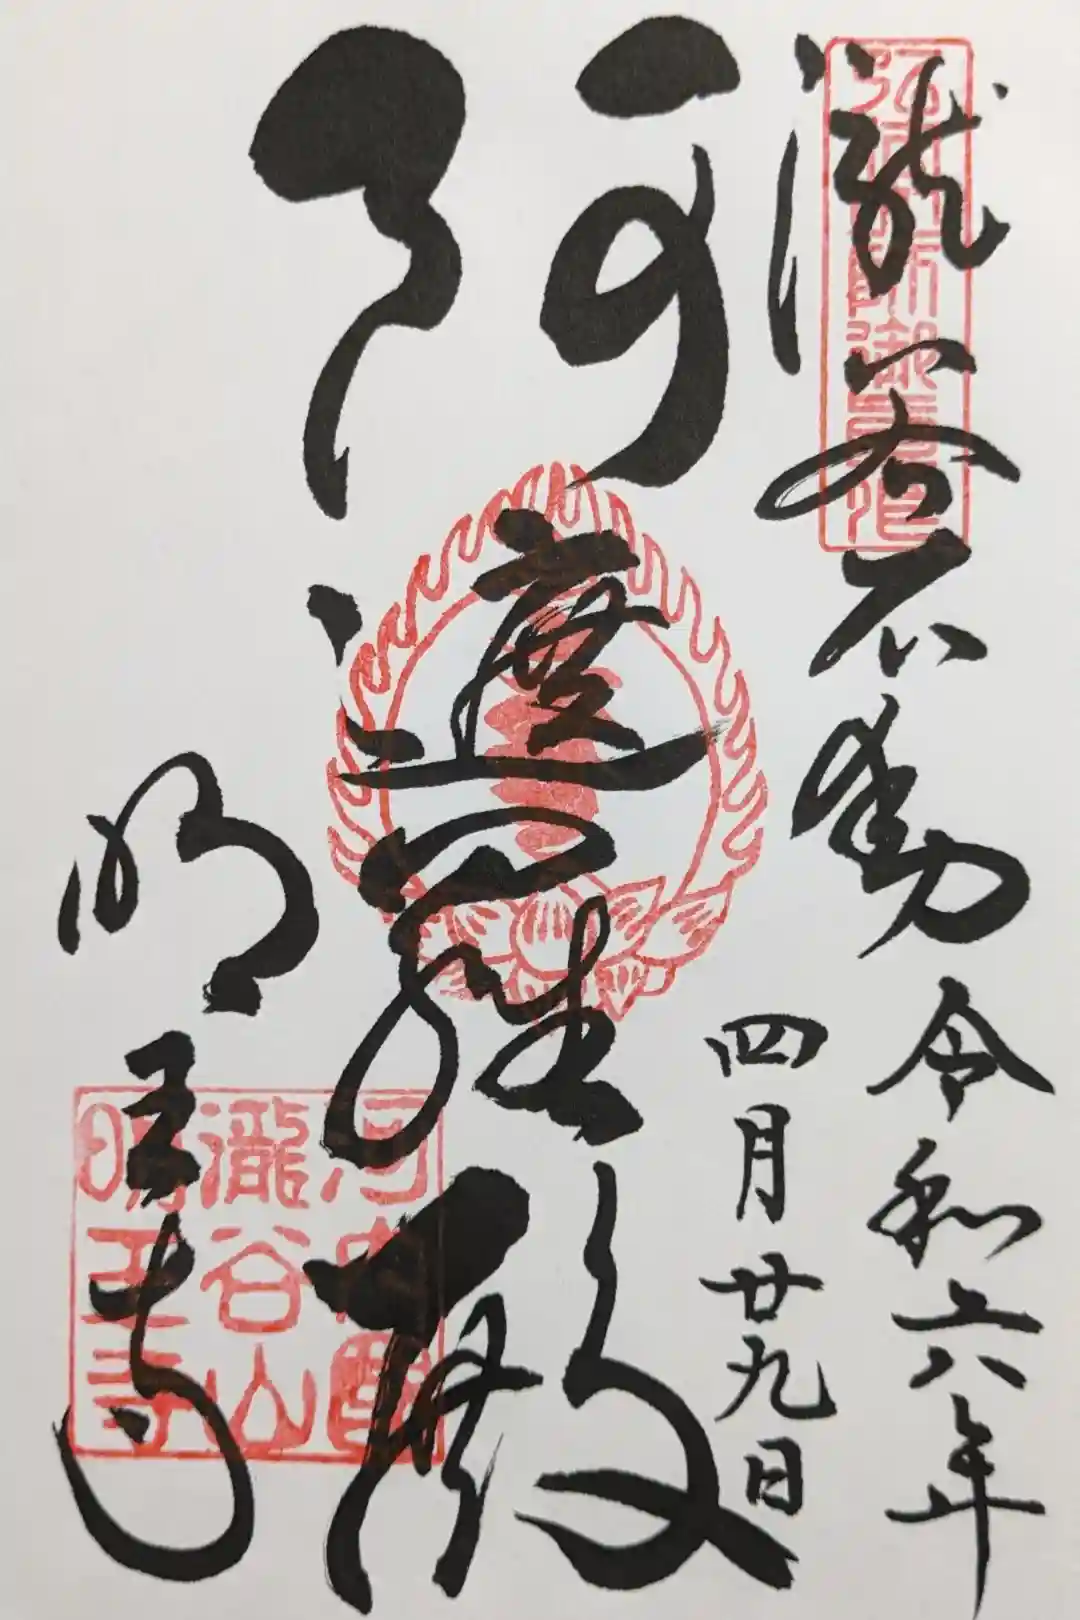 瀧谷不動
令和六年
四月廿九日
阿遮羅殿
明王寺
河内國
瀧谷山
明王寺